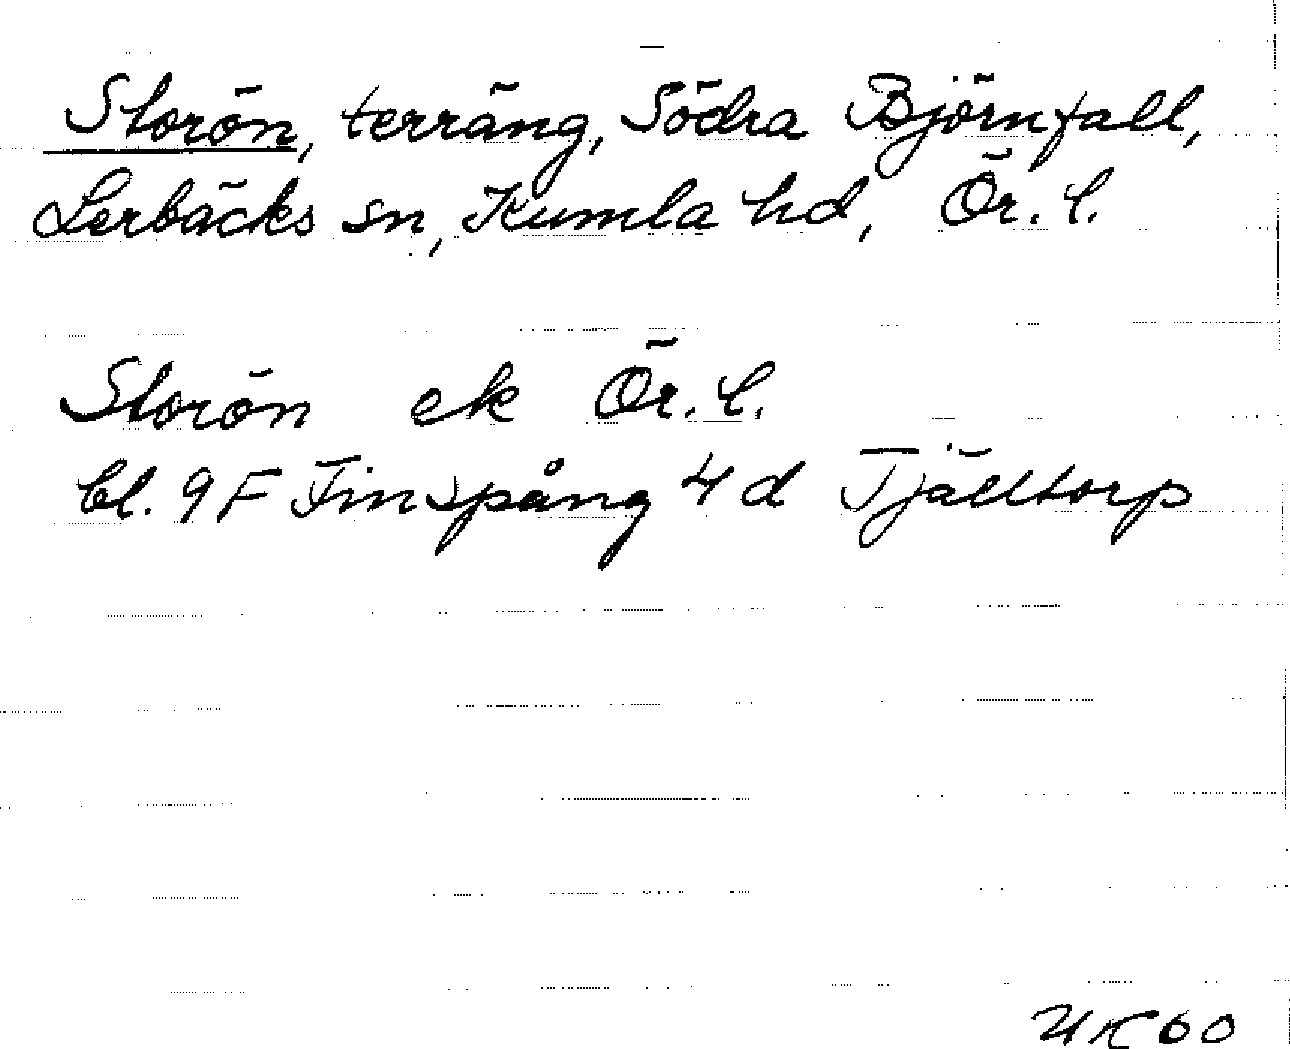 Storön, terräng, Södra Björnfall,
Lerbäcks sn, Kumla hd, Ör. l.
Storön ek Ör. l.
bl. 9 F Finspång 4 d Tjälltorp